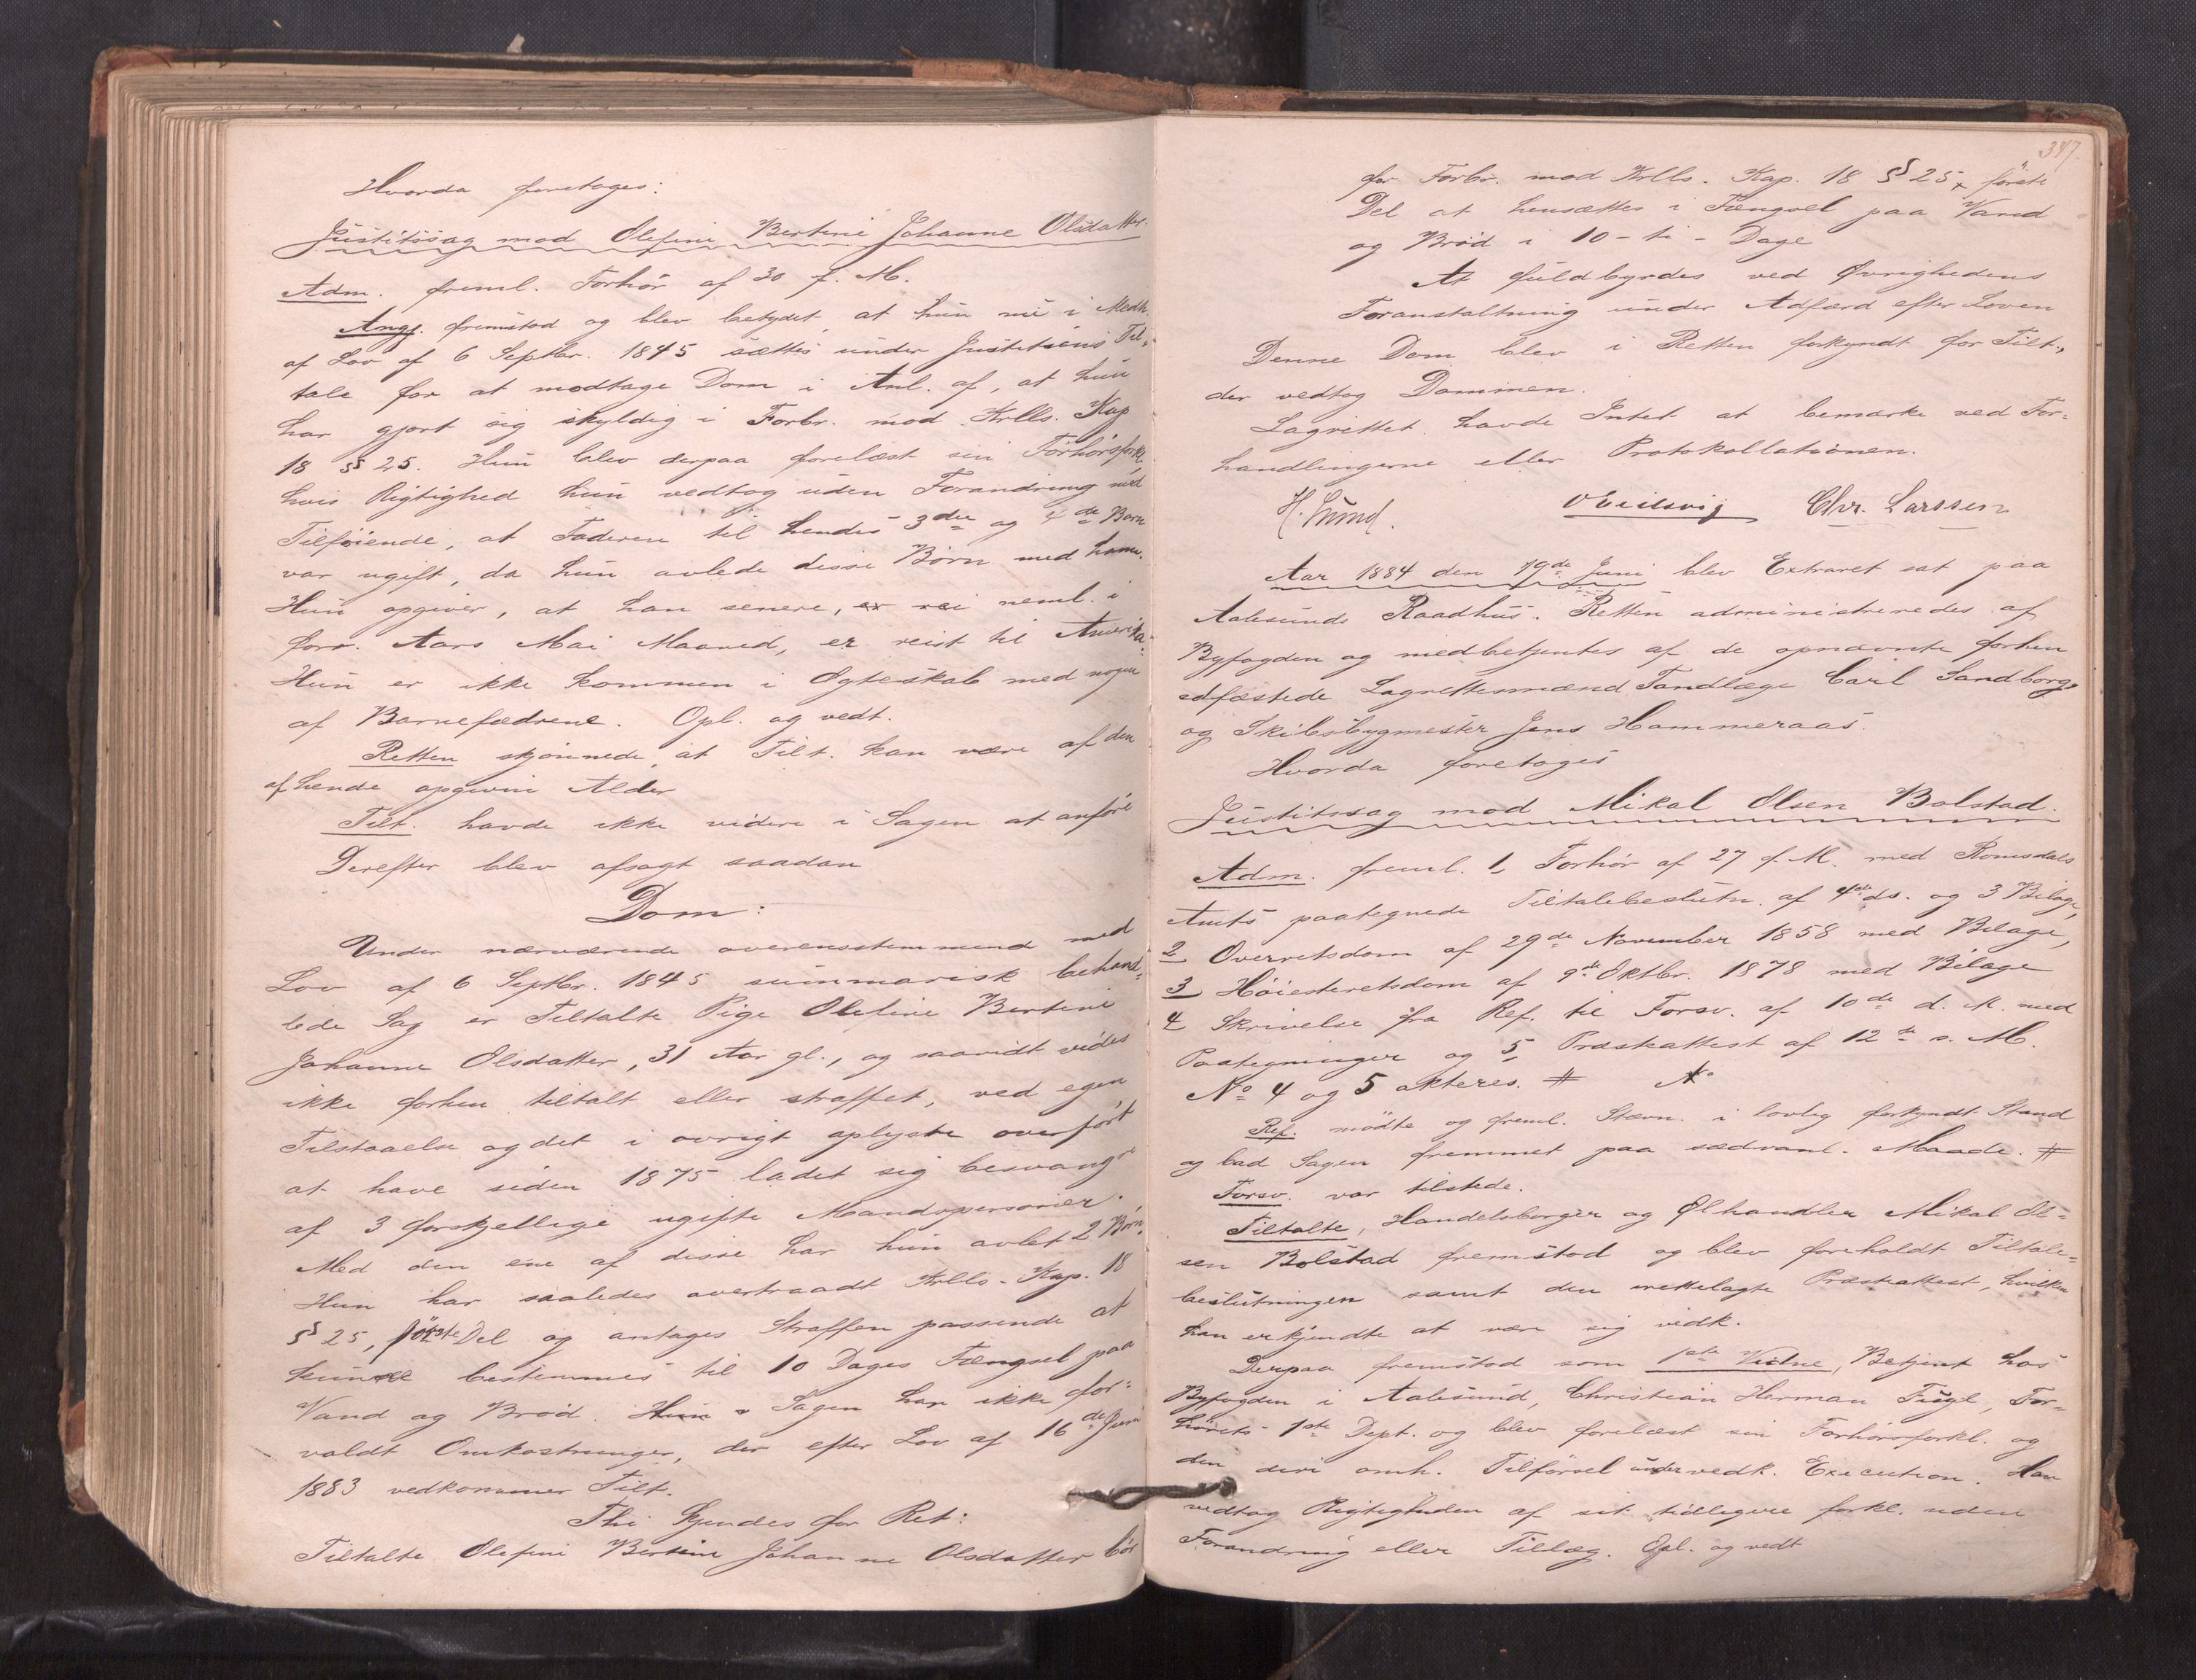 Hvorda foretoges:
Justitssag mod Olefine Bertine Johanne Olsdatter.
Adm. freml. Forhør af 30 f. M.
Angj. fremstod og blev betydet, at hun nu i Medh.
af Lov af 6 Septbr. 1845 sættes under Justitiens Til-
tale for at modtage Dom i Anl. af, at hun
har gjort sig skyldig i Forbr. mod Krlls. Kap
18 § 25. Hun blev derpaa forelæst sin Forhørsforkl.
hvis Rigtighed hun vedtog uden Forandring med
Tilføiende, at Faderen til hendes 3die og 4de Barn
var ugift, da hun avlede disse Børn med ham.
Hun opgiver, at han senere, er rei neml. i
forr. Aars Mai Maaned, er reist til Amerika.
Hun er ikke kommen i Ægteskab med nogen
af Barnefædrene. Opl. og vedt.
Retten skjønnede, at Tilt. kan være af den
af hende opgivne Alder
Tilt. havde ikke videre i Sagen at anføre
Derefter blev afsagt saadan
Dom:
Under nærværende overensstemmende med
Lov af 6 Septbr. 1845 summarisk behand-
lede Sag er Tiltalte Pige Olefine Bertine
Johanne Olsdatter, 31 Aar gl., og saavidt vides
ikke forhen tiltalt eller straffet, ved egen
Tilstaaelse og det i øvrigt oplyste overført
at have siden 1875 ladet sig besvangre
af 3 forskjellige ugifte Mandspersoner.
Med den ene af disse har hun avlet 2 Børn.
Hun har saaledes overtraadt Krlls. Kap. 18
§ 25, første Del og antages Straffen passende at
kunne bestemmes til 10 Dages Fængsel paa
Vand og Brød. Hun Sagen har ikke for-
voldt Omkostninger, der efter Lov af 16de Juni
1883 vedkommer Tilt.
Thi kjendes for Ret:
Tiltalte Olefine Bertine Johanne Olsdatter bør
347.
for Forbr. mod Krlls. Kap. 18 § 25, første
Del at hensættes i Fængsel paa Vand
og Brød i 10 - ti - Dage
At fuldbyrdes ved Øvrighedens
Foranstaltning under Adfærd efter Loven
Denne Dom blev i Retten forkyndt for Tilt.,
der vedtog Dommen.
Lagrettet havde Intet at bemærke ved For-
handlingerne eller Protokollationen.
H. Lund. Chr. Larssen
Aar 1884 den 19de Juni blev Extraret sat paa
Aalesunds Raadhus. Retten administreredes af
Byfogden og medbetjentes af de opnævnte forhen
edfæstede Lagrettesmænd Tandlæge Carl Sandborg
og Skibsbygmester Jens Hammeraas.
Hvorda foretoges
Justitssag mod Mikal Olsen Bolstad.
Adm. freml. 1, Forhør af 27 f. M. med Romsdals
Amts paategnede Tiltalebeslutn. af 4de ds. og 3 Bilage,
2 Overretsdom af 29de November 1858 med Bilage,
3 Høiesteretsdom af 9de Oktbr. 1878 med Bilage
4 Skrivelse fra Ref. til Forsv. af 10de d. M. med
Paategninger og 5, Præsteattest af 12te s. M.
No 4 og 5 akteres. # No
Ref. mødte og freml. Stævn. i lovlig forkyndt Stand
og bad Sagen fremmet paa sædvanl. Maade. #
Forsv. var tilstede.
Tiltalte, Handelsborger og Ølhandler Mikal Ol-
sen Bolstad fremstod og blev foreholdt Tiltale-
beslutningen samt den irettelagte Præsteattest, hvilken
han erkjendte at være sig vedk.
Derpaa fremstod som 1ste Vidne, Betjent hos
Byfogden i Aalesund, Christian Herman For-
hørets 1ste Dept. og blev forelæst sin Forhørsforkl. og
den deri omh. Tilførsel under vedk. Execution. Han
vedtog Rigtigheden af sit tidligere forkl. uden
Forandring eller Tillæg. Opl. og vedt